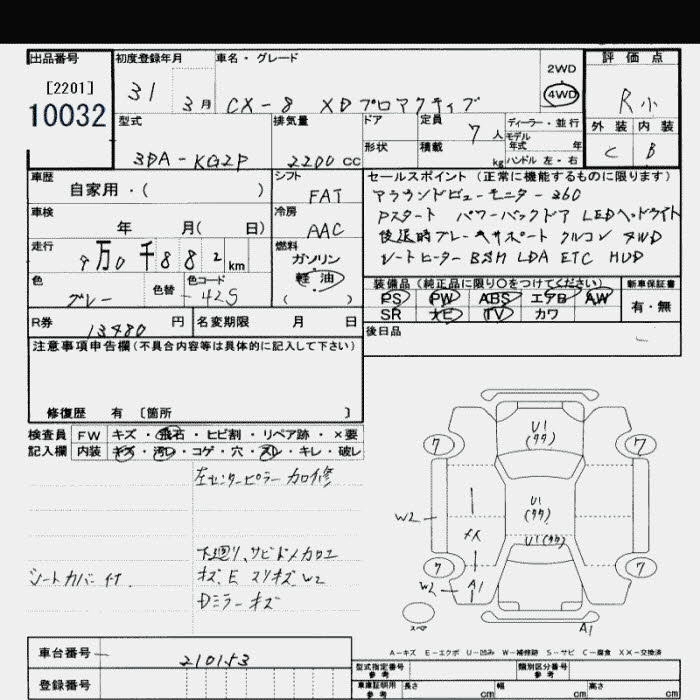 出品番号
[2201]
10032
初度登録年月
31
3月
車名・グレード
CX-8 XDプロアクティブ
2WD
4WD
評価点
R小
外装 内装
C B
型式
3DA-KG2P
排気量
2200cc
ドア
形状
定員
7人
積載
kg
ディーラー・並行
モデル
年式 年
ハンドル 左・右
車歴
自家用・( )
シフト
FAT
車検
年 月( 日)
冷房
AAC
走行
9万0千882km
燃料
ガソリン
軽油
( )
色
グレー
色替
色コード
42S
R券
13480円
名変期限 月 日
セールスポイント(正常に機能するものに限ります)
アラウンドビューモニター 360
Pスタート パワーバックドア LEDヘッドライト
後退時ブレーキサポート クルコン 4WD
シートヒーター BSM LDA ETC HUD
装備品(純正品に限り○をつけてください)
PS PW ABS エアB AW
SR ナビ TV カワ
新車保証書
有・無
後日品
注意事項申告欄(不具合内容等は具体的に記入して下さい)
修復歴 有 〔箇所 〕
検査員 FW キズ・飛石・ヒビ割・リペア跡・×要
記入欄 内装 キズ・汚レ・コゲ・穴・スレ・キレ・破レ
左センターピラー カロ修
下廻り、サビドメカロエ
キズ、E スリキズ W2
Dミラーキズ
シートカバー付
U1
(タタ)
7
7
W2
U1
(タタ)
メス
U1(タタ)
7
7
W2
A1
スペア
A1
A-キズ E-エクボ U-凹み W-補修跡 S-サビ C-腐食 XX-交換済
車台番号
210153
登録番号
型式指定番号
参考
類別区分番号
参考
車庫証明用
参考
長さ cm
幅 cm
高さ cm